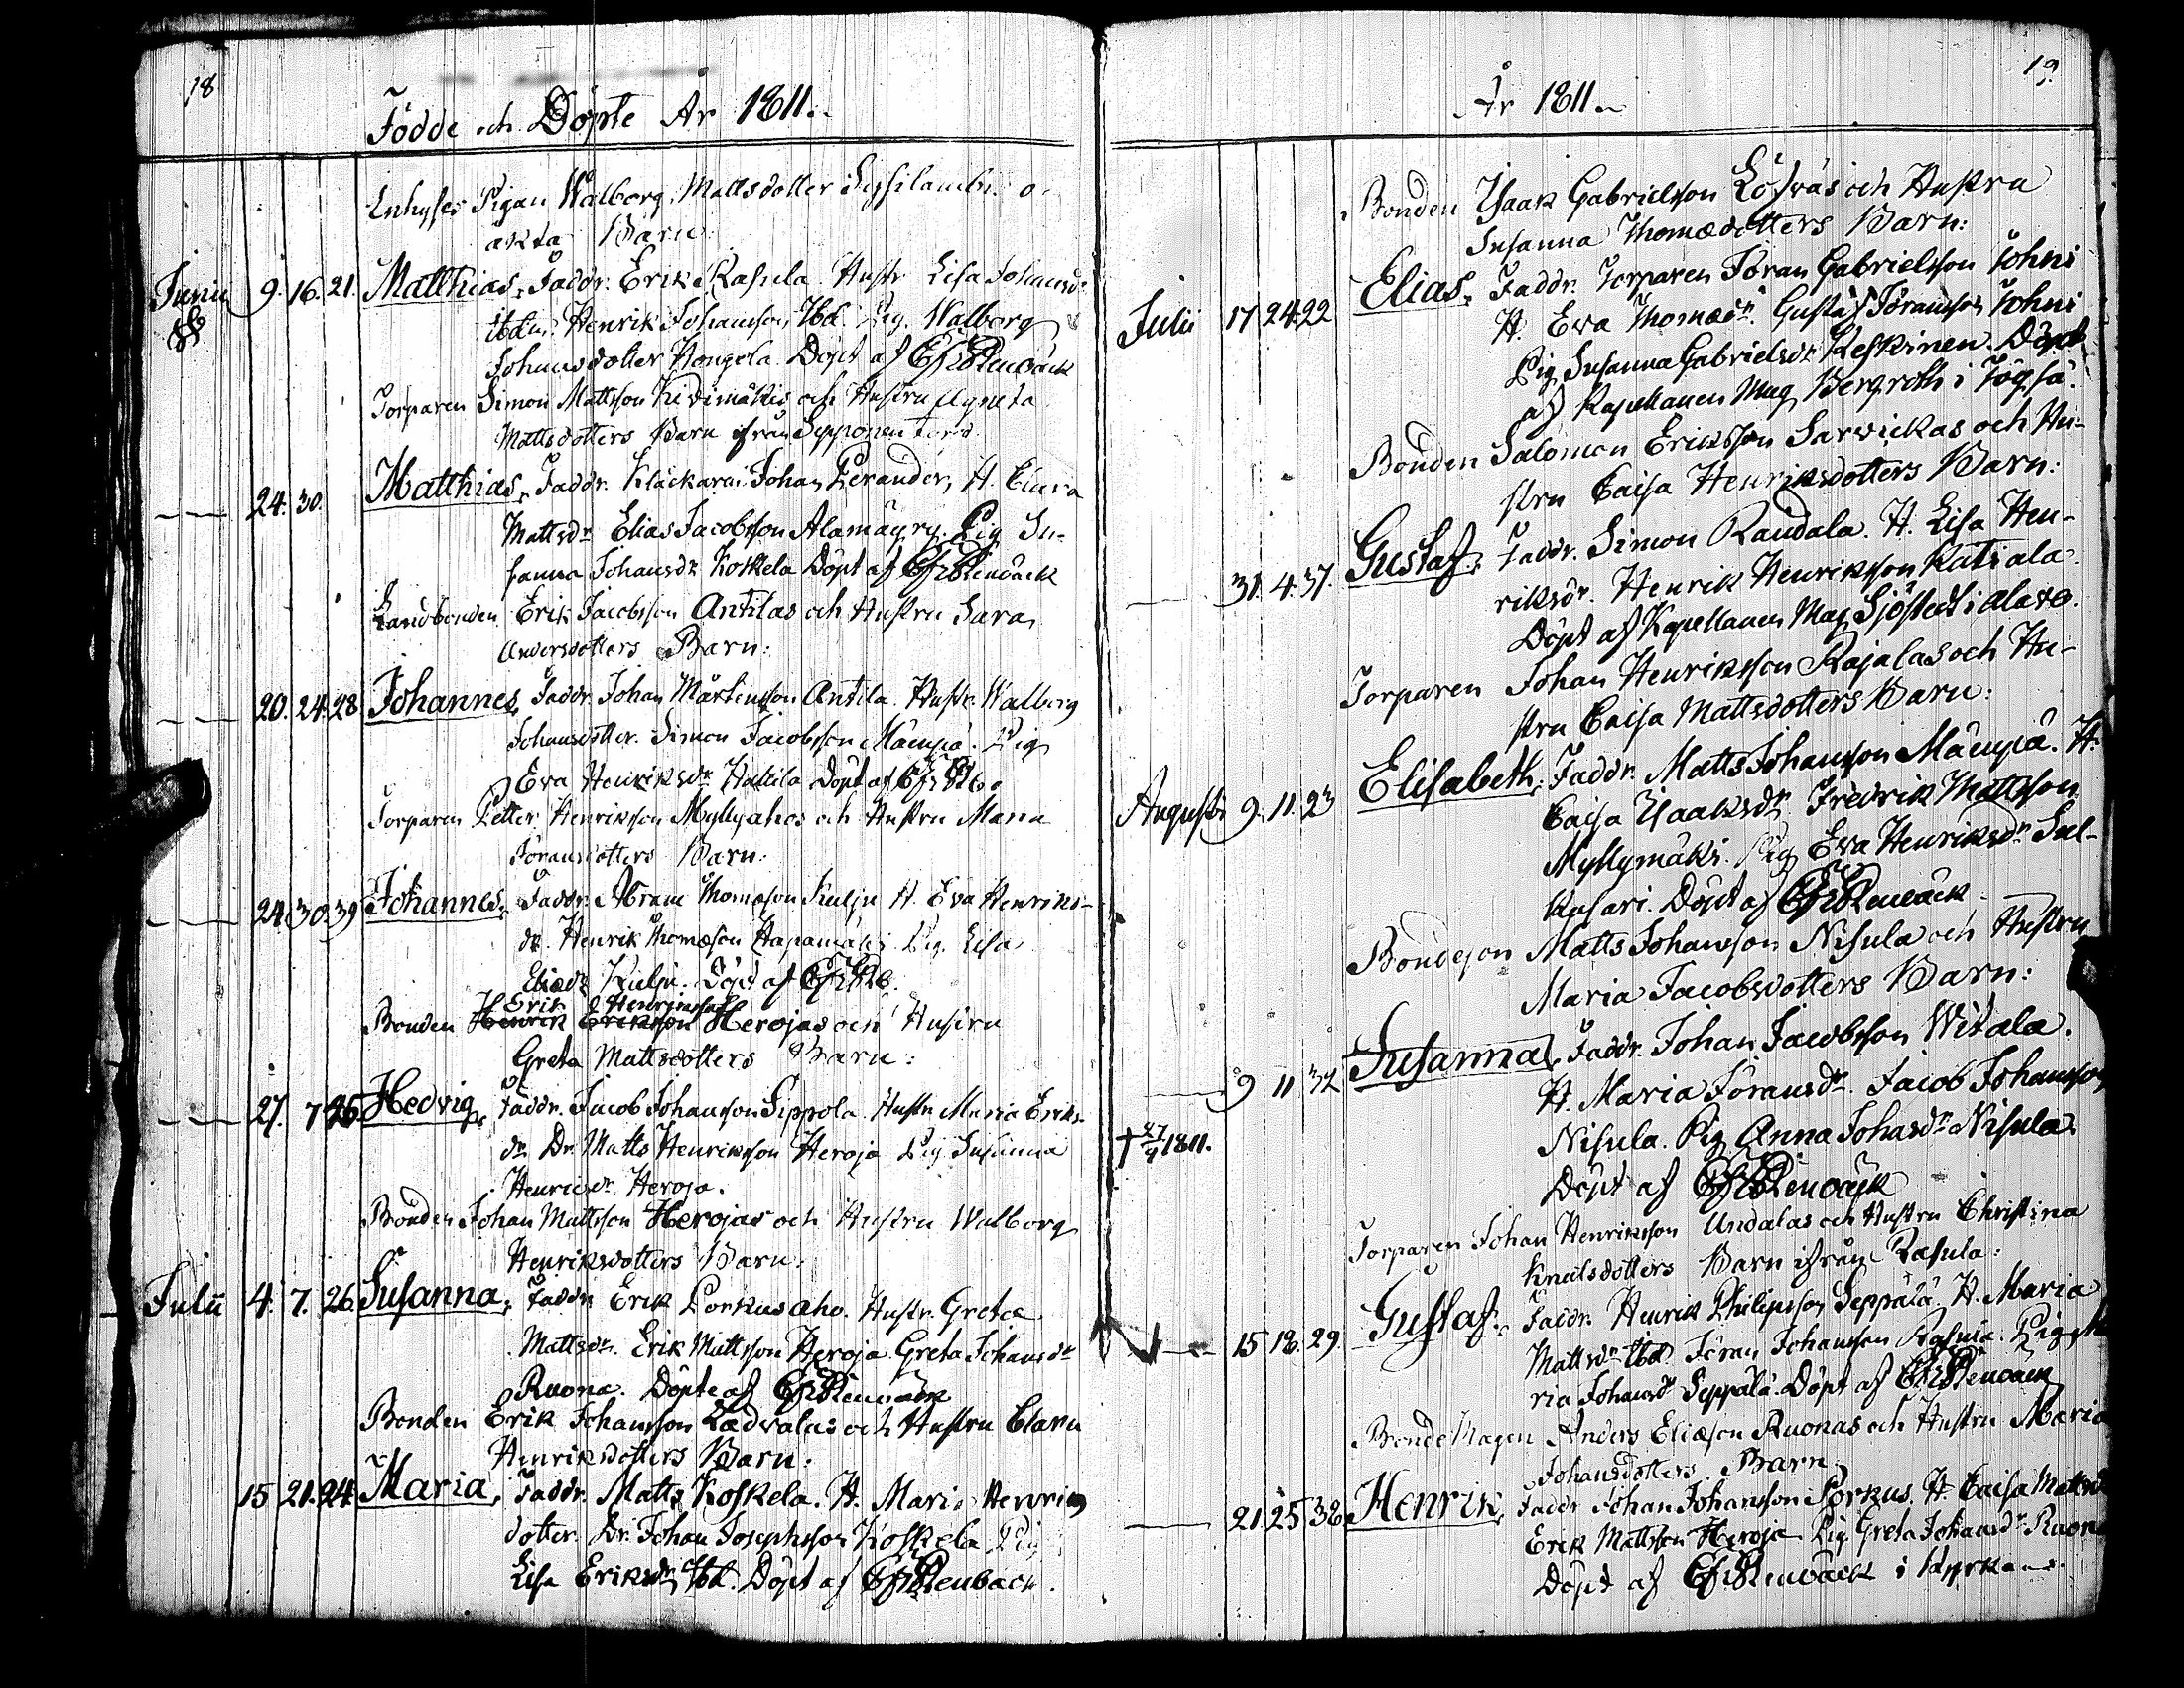 18
Födde och Döpte År 1811.
Enhyses Pigan Walborg Mattsdotter o-
äkta Barn:
Junii 9. 16. 21. Matthias, Faddr. Erik Rasula Hustr Lisa Johansdr
Ibd. Henrik Johansson Ibd. Pig. Walborg
Johansdotter Hongola. Döpt af
Torparen Simon Mattsson Kidimäkis och Hustru Agneta
Mattsdotters Barn ifrån Sepponen
24. 30. Matthias, Faddr. Klåckaren Johan Perander, H. Clara
Mattsdr Elias Jacobsson Alamäyry. Pig Su-
sanna Johansdr Koskela Döpt af
Landbonden Erik Jacobsson Antilas och Hustru Sara
Andersdotters Barn:
20. 24. 28 Johannes, Faddr. Johan Mårtensson Antila. Hustr. Walborg
Johansdotter. Simon Jacobsson Mäenpä. Pig
Eva Henriksdr Hatila Döpt af
Torparen Petter Henriksson Myllyahos och Hustru Maria
Göransdotters Barn:
24. 30. 39 Johannes, Faddr. Abram Thomæson Kulju H. Eva Henriks-
dr. Henrik Thomæson Hapamäki Pig. Lisa
Eliædr Kulju. Döpt af
Erik Henriksson
Bonden Henrik Eriksson Herojas och Hustru
Greta Mattsdotters Barn:
27. 7 26 Hedvig, Faddr. Jacob Johansson Sippola Hustr Maria Eriks-
dr Dr. Matts Henriksson Heroja Pig Susanna
Henricsdr Heroja.
Bonden Johan Mattsson Herojas och Hustru Walborg
Henriksdotters Barn:
Julii 4. 7. 26. Susanna, Faddr. Erik Porkusaho. Hustr. Greta
Mattsdr. Erik Mattsson Heroja Greta Johansdr
Ruona. Döpte af
Bonden Erik Johansson Ladvalas och Hustru Clara
Henriksdotters Barn:
15 21. 24 Maria, Faddr. Matts Koskela. H. Maria Henriks
dotter. Dr. Johan Josephsson Koskela Pig
Lisa Eriksdr Ibd. Döpt af
19.
År 1811.
Bonden Isaak Gabrielsson Löfvas och Hustru
Susanna Thomædotters Barn:
Julii 17 24 22 Elias, Faddr. Torparen Göran Gabrielsson Tohni
H. Eva Thomædr. Gustaf Göransson Tohni
Pig Susanna Gabrielsdr Keskinen. Döpt
af Kapellanen Mag Bergroth i
Bonden Salomon Eriksson Sarvickas och Hu-
stru Caisa Henriksdotters Barn:
31. 4. 37. Gustaf, Faddr. Simon Randala. H. Lisa Hen-
riksdr. Henrik Henriksson Katiala.
Döpt af Kapellanen Mag Sjöstedt i Alavo.
Torparen Johan Henriksson Rajalas och Hu-
stru Caisa Mattsdotters Barn:
Augusti 9. 11. 23 Elisabeth, Faddr. Matts Johansson Mäenpä. H.
Caisa Isaaksdr Fredrik Mattsson
Myllymäki. Pig Eva Henriksdr Sal-
kasari. Döpt af
Bondeson Matts Johansson Nisula och Hustru
Maria Jacobsdotters Barn:
9 11 32 Susanna, Faddr. Johan Jacobsson Witala.
H. Maria Göransdr. Jacob Johansson
† 27/9 1811. Nisula. Pig Anna Johansdr Nisula.
Döpt af
Torparen Johan Henriksson Undalas och Hustru Christina
Knutsdotters Barn ifrån Rasula:
15 18. 29. Gustaf, Faddr. Henrik Philipsson Seppälä. H. Maria
Mattsdr Ibd. Göran Johansson Rasula. Pig Ma
ria Johansdr Seppälä. Döpt af
Bondemagen Anders Eliæson Ruonas och Hustru Maria
Johansdotters Barn
21. 25 32 Henrik, Faddr Johan Johansson Porkus. H. Caisa Mattsd
Erik Mattsson Heroja Pig Greta Johansdr Ruona
Döpt af i Kyrkan